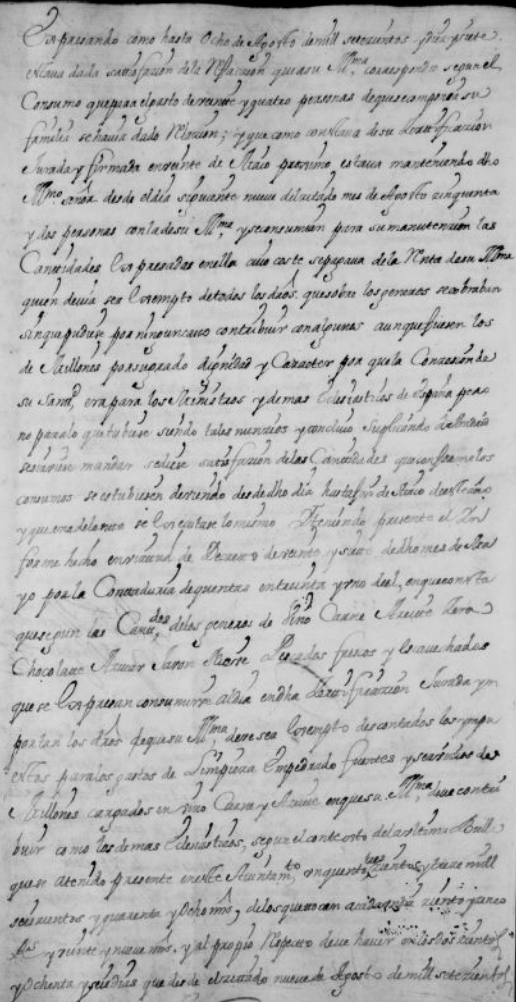 Expresando como hasta ocho de Agosto de mill setezientos y diez y siete
estava dada satisfazion de la Refaccion que a su Yll.ma correspondio segun el
Consumo que para el gasto de veinte y quatro personas de que se componia su
familia se havia dado Relazion; y que como constava de su Zertificazion
Jurada y firmada en veinte de Maio proximo, estava manteniendo dho
Yll.mo señor desde el dia siguiente nueve del zitado mes de Agosto zinquenta
y dos personas con la de su Yll.ma y se consumian para su manutenzion las
Cantidades Expresadas en ella cuio coste se pagava de la Renta de su Yll.ma
quien devia ser Exempto de todos los dros. que sobre los generos se cobraban
sin que pudiese por ningun caso contribuir con algunos aunque fuesen los
de Millones por su grado dignidad y Caracter por que la Conzesion de
su Sant.d era para los Ministros y demas Eclesiasticos de España pero
no para lo que tubiese siendo tales nunzios y concluio Suplicando
se sirviese mandar se diese satisfazion de las Cantidades que conforme los
consumos se estubiesen deviendo desde dho dia hasta fin de Maio de este año
y que en adelante se Executase lo mismo Y teniendo presente el Yn
forme hecho en virtud de Decreto de veinte y siete de dho mes de Ma
yo por la Contaduria de quentas en treinta y uno de el, en que consta
que segun las Cantt.des de los generos de Vino Carne Azeite Zera
Chocolate Azucar Javon Nieve Pescados frescos y Escavechados
que se Expresan consumirse al dia en dha Zertificazion Jurada ym
portan los dros. de que su Yll.ma deve ser Exempto descontados los ympu
estos para los gastos de Limpieza Empedrado fuentes y servizios de
Millones cargados en vino Carne y Azeite en que su Yll.ma deve contri
buir como los demas Eclesiasticos, segun el contexto de la ultima Bulla
que se a tenido presente en este Ayuntam.to zinquenta y tres mill
setezientos y quarenta y ocho mrs, de los que tocan a cada dia ziento y
Rs y veinte y nueve mrs. y al propio Respecto deve haver en los doszientos
y ochenta y seis dias que ay desde el zitado nueve de Agosto de mill setezientos